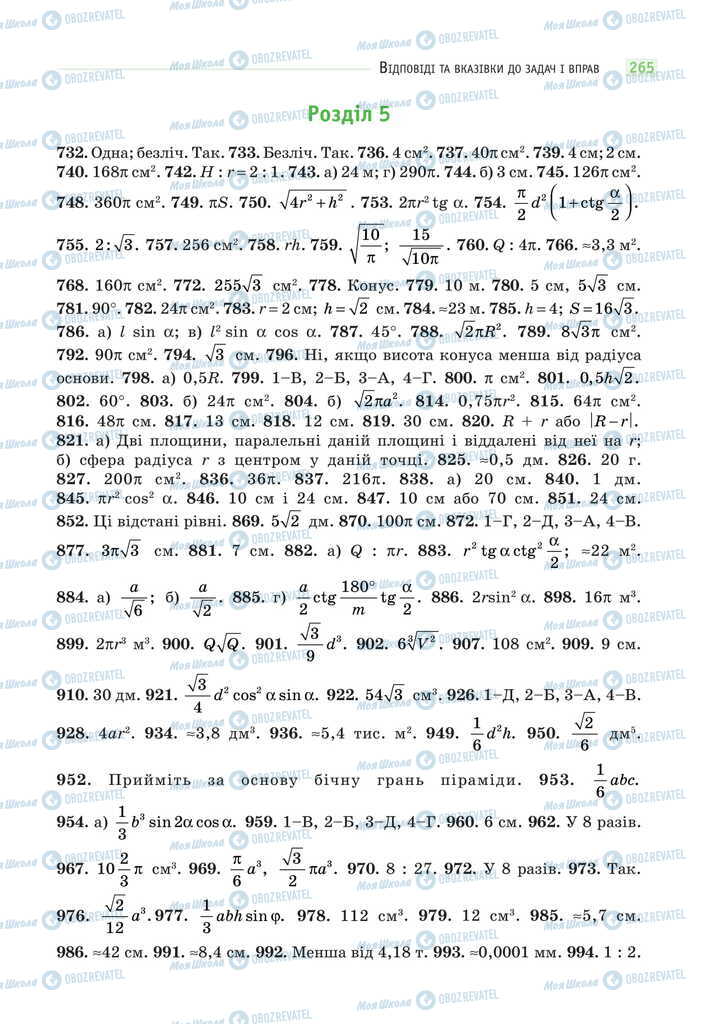 ВІДПОВІДІ ТА ВКАЗІВКИ ДО ЗАДАЧ І ВПРАВ 265
Розділ 5
732. Одна; безліч. Так. 733. Безліч. Так. 736. 4 см². 737. 40π см². 739. 4 см; 2 см.
740. 168π см². 742. H : r = 2 : 1. 743. а) 24 м; г) 290π. 744. б) 3 см. 745. 126π см².
748. 360π см². 749. πS. 750. √(4r² + h²). 753. 2πr² tg α. 754. π/2 d² (1 + ctg α/2).
755. 2 : √3. 757. 256 см². 758. rh. 759. √(10/π); 15/√(10π). 760. Q : 4π. 766. ≈3,3 м².
768. 160π см². 772. 255√3 см². 778. Конус. 779. 10 м. 780. 5 см, 5√3 см.
781. 90°. 782. 24π см². 783. r = 2 см; h = √2 см. 784. ≈23 м. 785. h = 4; S = 16√3.
786. а) l sin α; в) l² sin α cos α. 787. 45°. 788. √2πR². 789. 8√3π см².
792. 90π см². 794. √3 см. 796. Ні, якщо висота конуса менша від радіуса
основи. 798. а) 0,5R. 799. 1–В, 2–Б, 3–А, 4–Г. 800. π см². 801. 0,5h√2.
802. 60°. 803. б) 24π см². 804. б) √2πa². 814. 0,75πr². 815. 64π см².
816. 48π см. 817. 13 см. 818. 12 см. 819. 30 см. 820. R + r або |R – r|.
821. а) Дві площини, паралельні даній площині і віддалені від неї на r;
б) сфера радіуса r з центром у даній точці. 825. ≈0,5 дм. 826. 20 г.
827. 200π см². 836. 36π. 837. 216π. 838. а) 20 см. 840. 1 дм.
845. πr² cos² α. 846. 10 см і 24 см. 847. 10 см або 70 см. 851. 24 см.
852. Ці відстані рівні. 869. 5√2 дм. 870. 100π см. 872. 1–Г, 2–Д, 3–А, 4–В.
877. 3π√3 см. 881. 7 см. 882. а) Q : πr. 883. r² tg α ctg² α/2; ≈22 м².
884. а) a/√6; б) a/√2. 885. г) a/2 ctg 180°/m tg α/2. 886. 2rsin² α. 898. 16π м³.
899. 2πr³ м³. 900. Q√Q. 901. √3/9 d³. 902. 6∛V². 907. 108 см². 909. 9 см.
910. 30 дм. 921. √3/4 d² cos² α sin α. 922. 54√3 см³. 926. 1–Д, 2–Б, 3–А, 4–В.
928. 4ar². 934. ≈3,8 дм³. 936. ≈5,4 тис. м². 949. 1/6 d²h. 950. √2/6 дм⁵.
952. Прийміть за основу бічну грань піраміди. 953. 1/6 abc.
954. а) 1/3 b³ sin 2α cos α. 959. 1–В, 2–Б, 3–Д, 4–Г. 960. 6 см. 962. У 8 разів.
967. 10 2/3 π см³. 969. π/6 a³, √3/2 πa³. 970. 8 : 27. 972. У 8 разів. 973. Так.
976. √2/12 a³. 977. 1/3 abh sin φ. 978. 112 см³. 979. 12 см³. 985. ≈5,7 см.
986. ≈42 см. 991. ≈8,4 см. 992. Менша від 4,18 т. 993. ≈0,0001 мм. 994. 1 : 2.